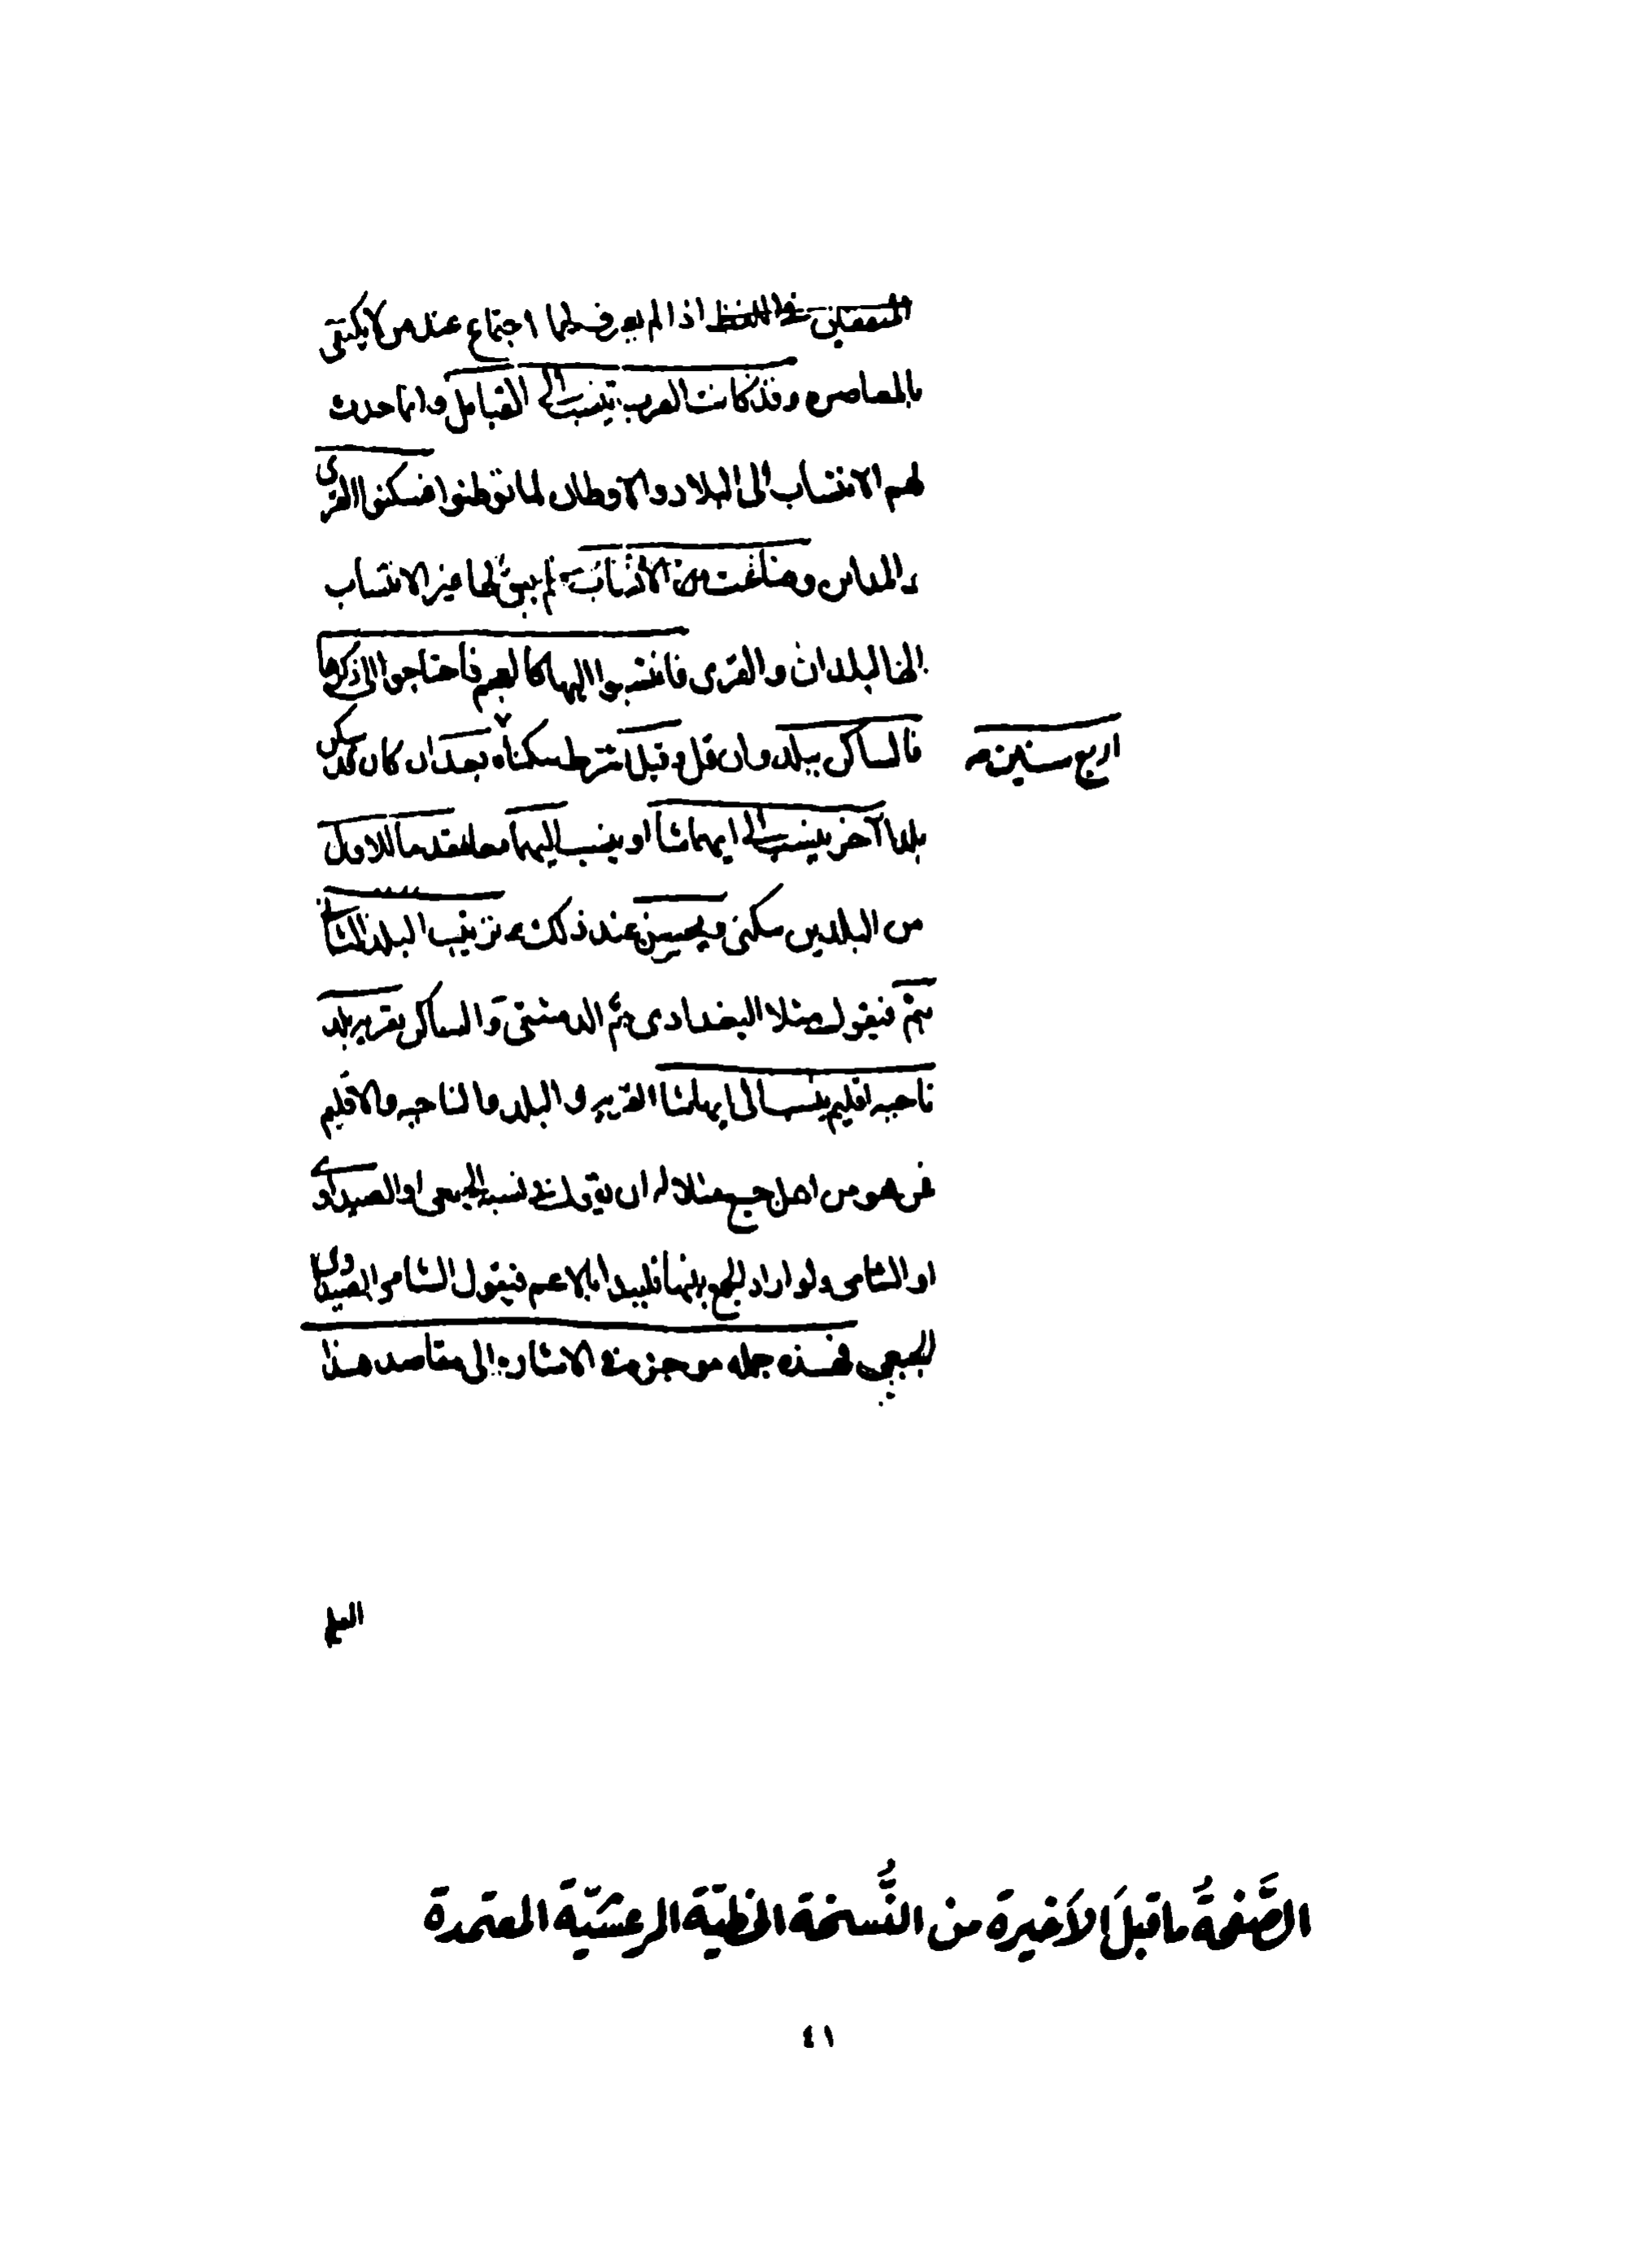 المتفقين في اللفظ اذا لم يعرف لهما اجتماع عند من لا يكتفي
بالمعاصرة وقد كانت العرب تنسب الى القبايل وانما حدث
لهم الانتساب الى البلاد والاوطان لما توطنوا فسكنوا القرى
والمداين وضاعت الانساب لم يبق لها غير الانتساب
الى البلدان والقرى فانتسبوا اليها كالعجم فاحتاجوا الى ذكرها
فالساكن ببلد وان قل وقيل يشترط سكناه بعد ان كان قد سكن
اربع سنين صه
بلدا آخر ينسب الى ايهما شا او ينسب اليهما معا مقدما للاول
من البلدين سكنى ويحسن عند ذلك ترتيب البلد الثاني
بثم فيقول مثلا البغدادي ثم الدمشقي والساكن بقريه بلد
ناحيه اقليم ينسب الى ايها شا القريه والبلد والناحيه والاقليم
فمن هو من اهل جبع مثلا له ان يقول في نسبه الجبعي او الصيداوي
او الشامي ولو اراد الجمع بينها فليبدا بالاعم فيقول الشامي الصيداوي
الجبعي فهذه جمله موجزه في الاشاره الى مقاصد هذا
العلم
الصَّفحةُ ما قبلَ الأخيرة من النُّسخة الخطيّة المرعشيّة المعتمدة
٤١